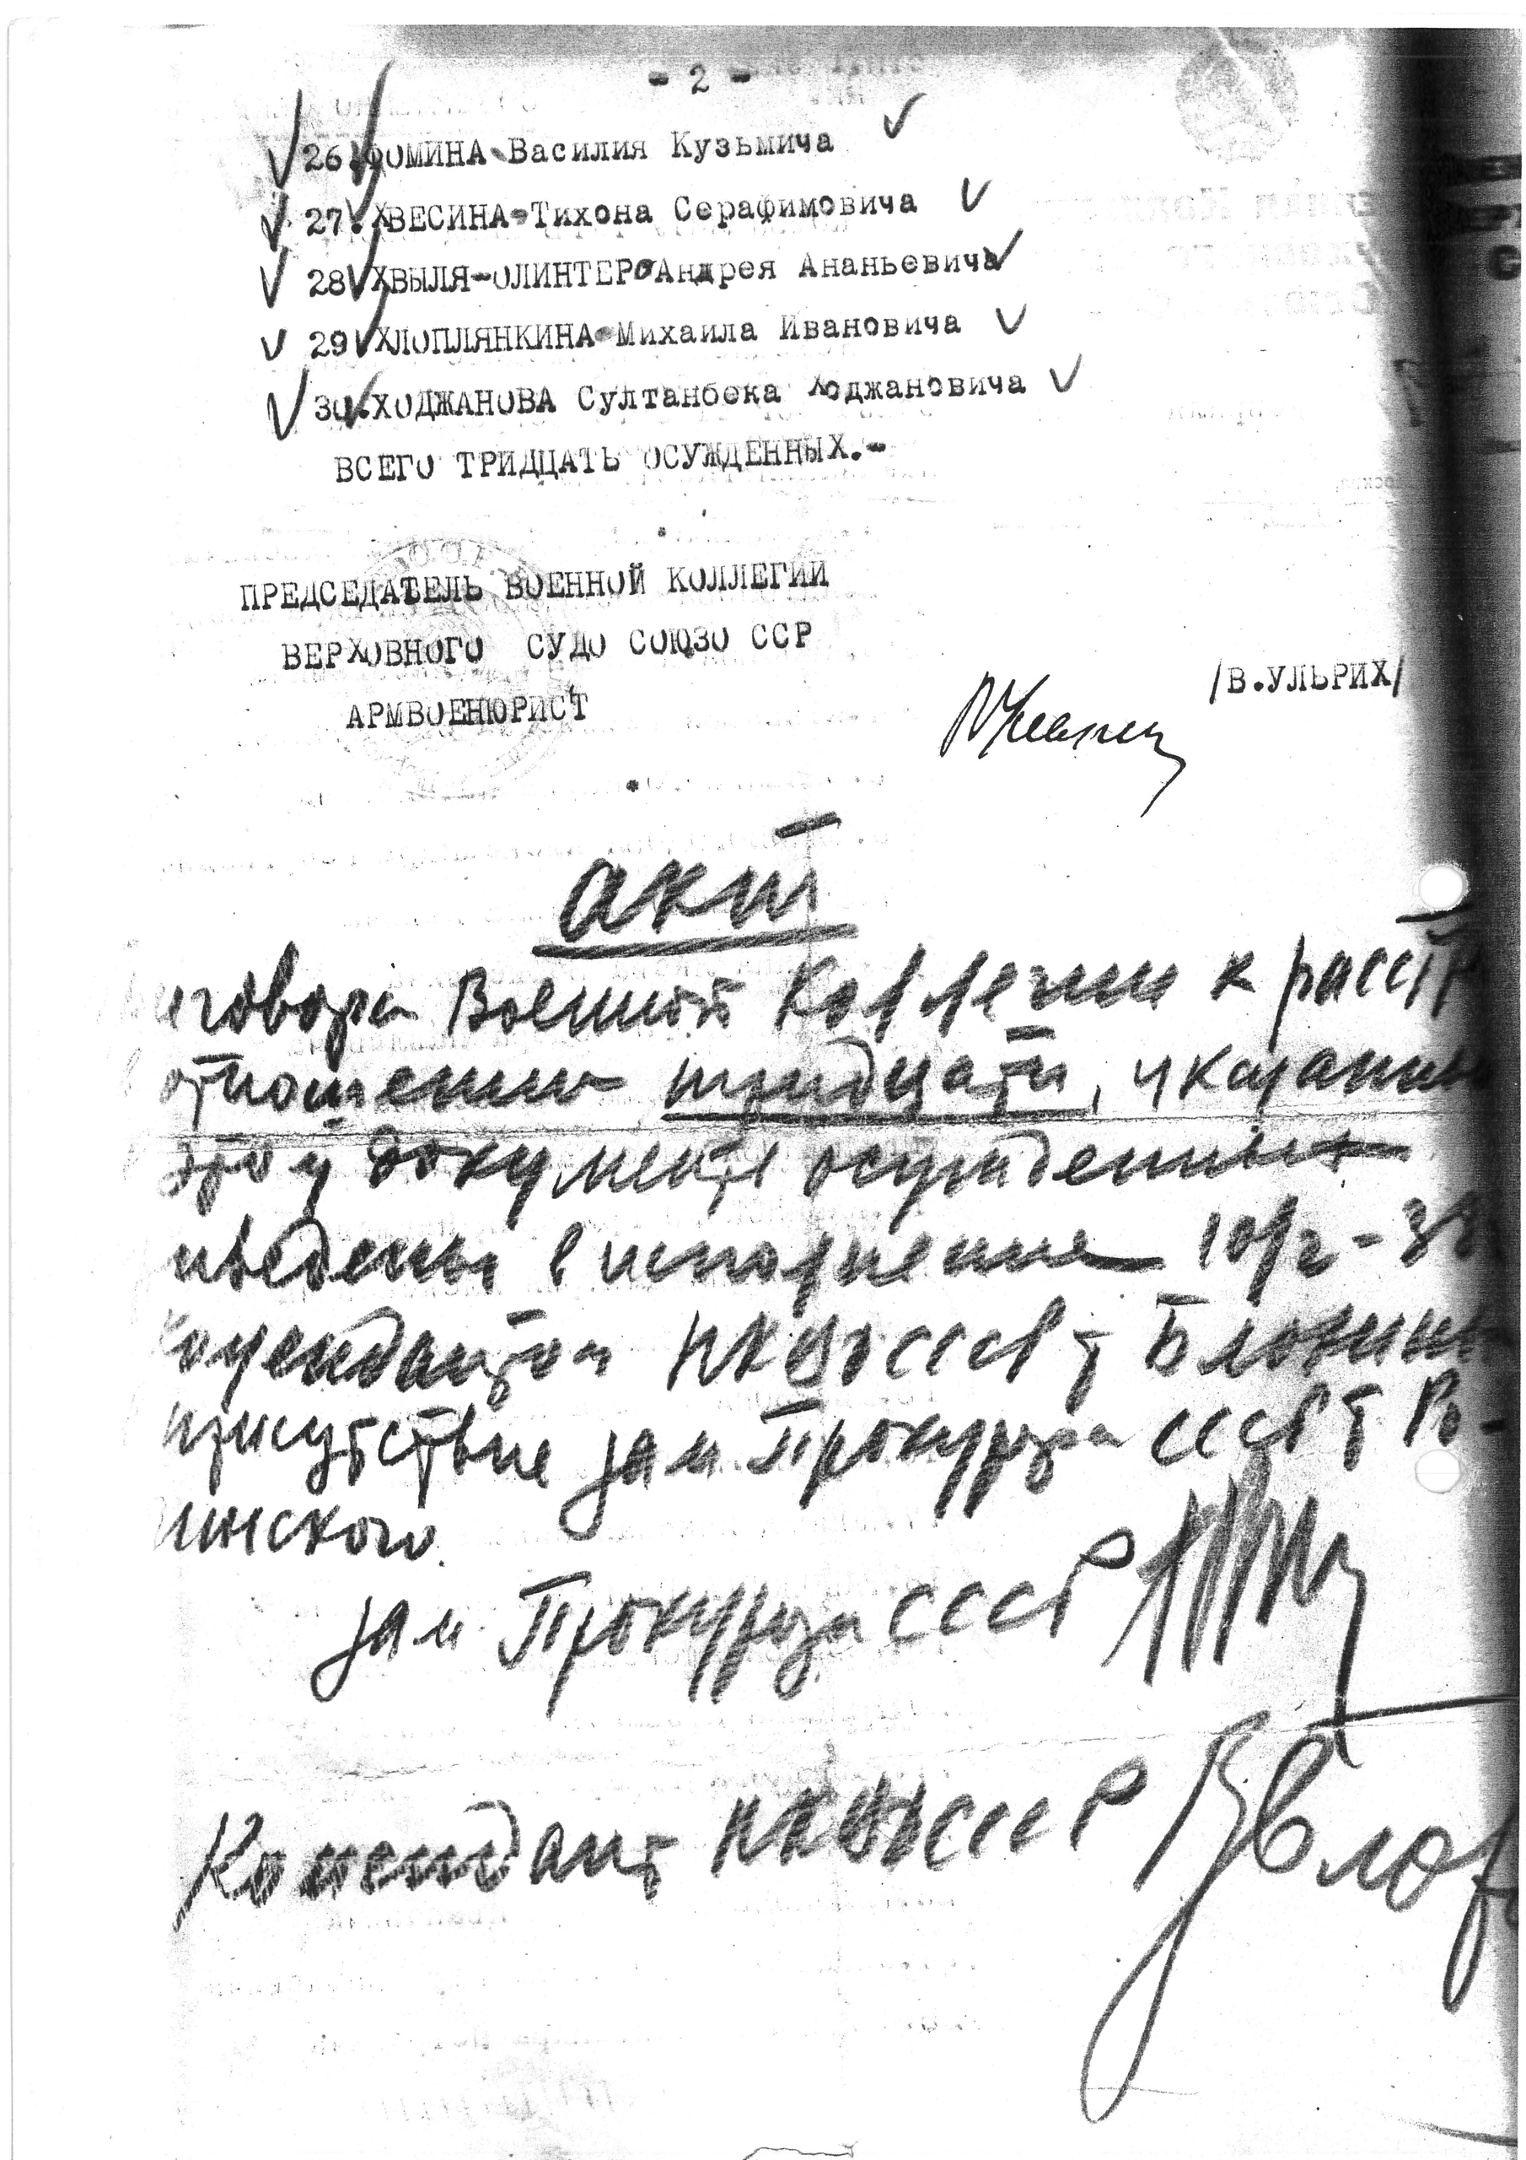 - 2 -
26.ФОМИНА-Василия Кузьмича
27.ХВЕСИНА-Тихона Серафимовича
28.ХВЫЛЯ-ОЛИНТЕР-Андрея Ананьевича
29.ХЛОПЛЯНКИНА-Михаила Ивановича
30.ХОДЖАНОВА Султанбека Ходжановича
ВСЕГО ТРИДЦАТЬ ОСУЖДЕННЫХ.-
ПРЕДСЕДАТЕЛЬ ВОЕННОЙ КОЛЛЕГИИ
ВЕРХОВНОГО СУДО СОЮЗО ССР
АРМВОЕНЮРИСТ
/В.УЛЬРИХ/
акт
иговора Военной Коллегии к расстр
отношении тридцати, указанны
этом документе осужденных
иведены в исполнение 10/2-38
комендантом НКВД СССР т Блохины
присутствие зам Прокурора СССР т Ро-
инского.
зам. Прокурора СССР
Комендант НКВД СССР Блох